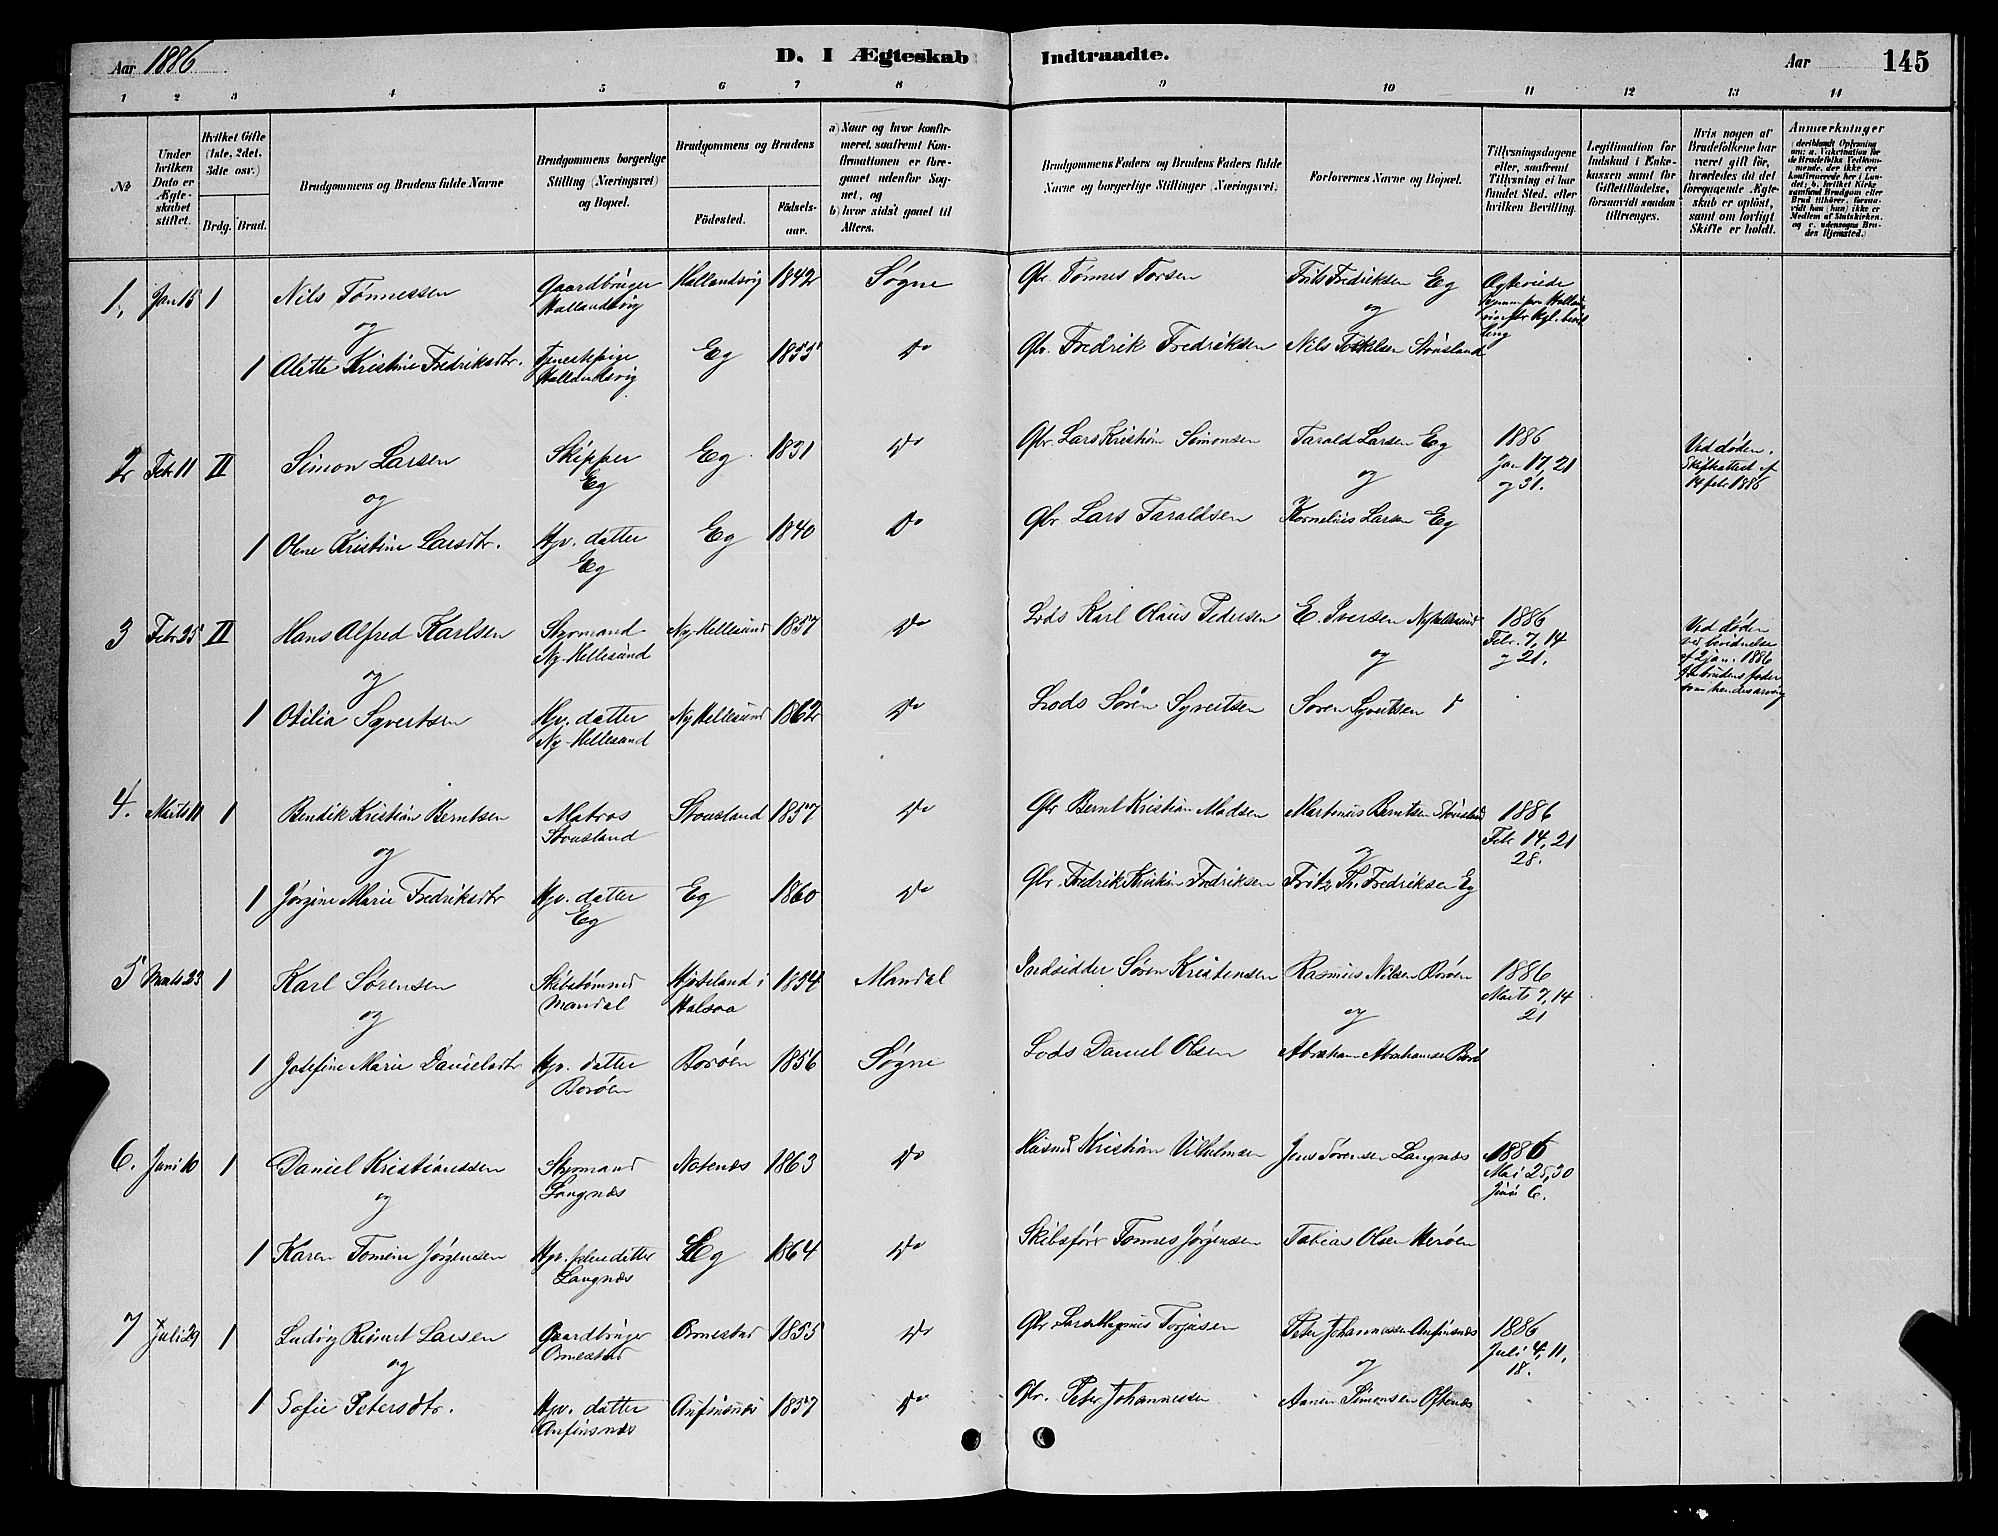 Aar 1886
D. I Ægteskab Indtraadte.
Aar
145
1 2 3 4 5 6 7 8 9 10 11 12 13 14
№
Under hvilken Dato er Ægteskabet stiftet.
Hvilket Gifte (1ste, 2det, 3die osv.)
Brdg. Brud.
Brudgommens og Brudens fulde Navne
Brudgommens borgerlige Stilling (Næringsvei) og Bopæl.
Brudgommens og Brudens
Födested.
Födselsaar.
a) Naar og hvor konfirmeret, saafremt Konfirmationen er foregaaet udenfor Sognet, og
b) hvor sidst gaaet til Alters.
Brudgommens Faders og Brudens Faders fulde Navne og borgerlige Stillinger (Næringsvei).
Forlovernes Navne og Bopæl.
Tillysningsdagene eller, saafremt Tillysning ei har fundet Sted, efter hvilken Bevilling.
Legitimation for Indskud i Enkekassen samt for Giftetilladelse, forsaavidt saadan tiltrænges.
Hvis nogen af Brudefolkene har været gift för, hvorledes da det foregaaende Ægteskab er oplöst, samt om lovligt Skifte er holdt.
Anmærkninger (deriblandt Oplysning om: a. Vakcination for de Brudefolks Vedkommende, der ikke ere konfirmerede her i Landet; b. hvilket Kirkesamfund Brudgom eller Brud tilhörer, forsaavidt han (hun) ikke er Medlem af Statskirken, og c. udensogns Brudes Hjemsted.)
1, Jan 15 1 Nils Tönnessen Gaardbruger Hallandsvig Hallandsvig 1842 Søgne Gbr Tönnes Torsen Frits Fredriksen Eg
og og
1 Olette Kristine Fredriksdtr. Tjenestepige Hallandsvig Eg 1855 Do Gbr. Fredrik Fredriksen Nils Stousland
2 Febr 11 II Simon Larsen Skipper Eg Eg 1831 Do Gbr. Lars Kristian Simonsen Tarald Larsen Eg 1886 Jan 17, 21 og 31. Ved döden. Skifteattest af 14 febr 1886
og og
1 Olene Kristine Larsdtr. Hjv. datter Eg Eg 1840 Do Gbr Lars Taraldsen Kornelius Larsen Eg
3 Febr 25 II Hans Alfred Karlsen Styrmand Ny-Hellesund Ny-Hellesund 1857 Do Lods Karl Olaus Pedersen E. Iversen Nyhellesund 1886 Febr. 7, 14 og 21. Ved döden
og og
1 Otilia Syvertsen Hjv. datter Ny-Hellesund Ny Hellesund 1862 Do Lods Sören Syvertsen Sören Syvertsen
4. Marts 11 1 Bendik Kristian Berntsen Matros Stousland Stousland 1857 Do Gbr Bernt Kristian Madsen Martinius Berntsen Stousland 1886 Febr 14, 21 28.
og og
1 Jørgine Marie Fredriksdtr Hjv. datter Eg Eg 1860 Do Gbr. Fredrik Kristian Fredriksen Fritz Th. Fredriksen Eg
5 Marts 23 1 Karl Sørensen Mandal Halsaa 1854 Mandal Indsidder Sören Kristensen Rasmus Nilsen Boröen 1886 Marts 7, 14 21
og og
1 Josefine Marie Danielsdtr Hjv. datter Boröen Boröen 1856 Søgne Lods Daniel Olsen Abraham Abrahamsen
6. Juni 10 1 Daniel Kristianssen Styrmand Langnæs 1863 Do Husmd Kristian Vilhelmsen Jens Sörensen Langnæs 1886 Mai 25, 30 Juni 6.
og
1 Karen Tomine Jørgensen Hjv. datter Langnæs Eg 1864 Do Skibsförer Tönnes Jørgensen Tobias Olsen Heröen
7 Juli 29 1 Ludvig Larsen Gaardbruger Omestad Omestad 1855 Do Gbr Lars Magnus Torjusen Peter Johannessen Anfinsnæs 1886 Juli 4, 11, 18.
og og
1 Sofie Petersdtr. Hjv. datter Anfinsnæs Anfinsnæs 1857 Do Gbr. Peter Johannessen Simonsen Oftenæs